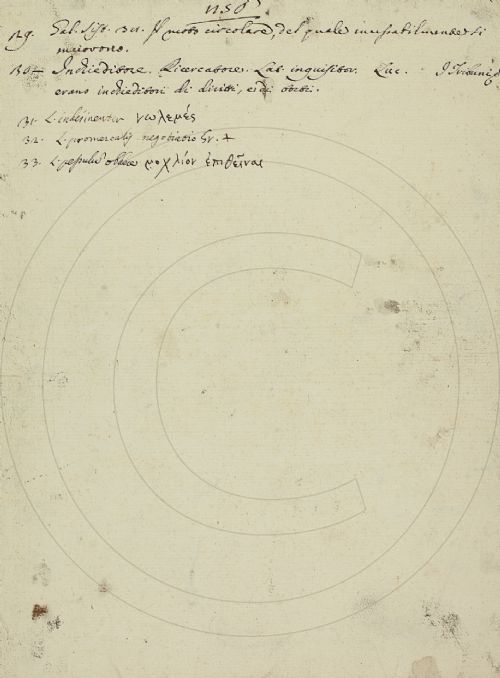 29. Gal. Sist. 311. Il moto circolare, del quale incessabilmente si
muovono.
30+ Inchieditore. Ricercatore. Lat. inquisitor. Luc. I Tribuni
erano inchieditori di diritti, e di
31. L. indesinenter νωλεμές
32. L. promercalis negotiatio Gr. +
33. L. obdere μοχλίον ἐπιθεῖναι